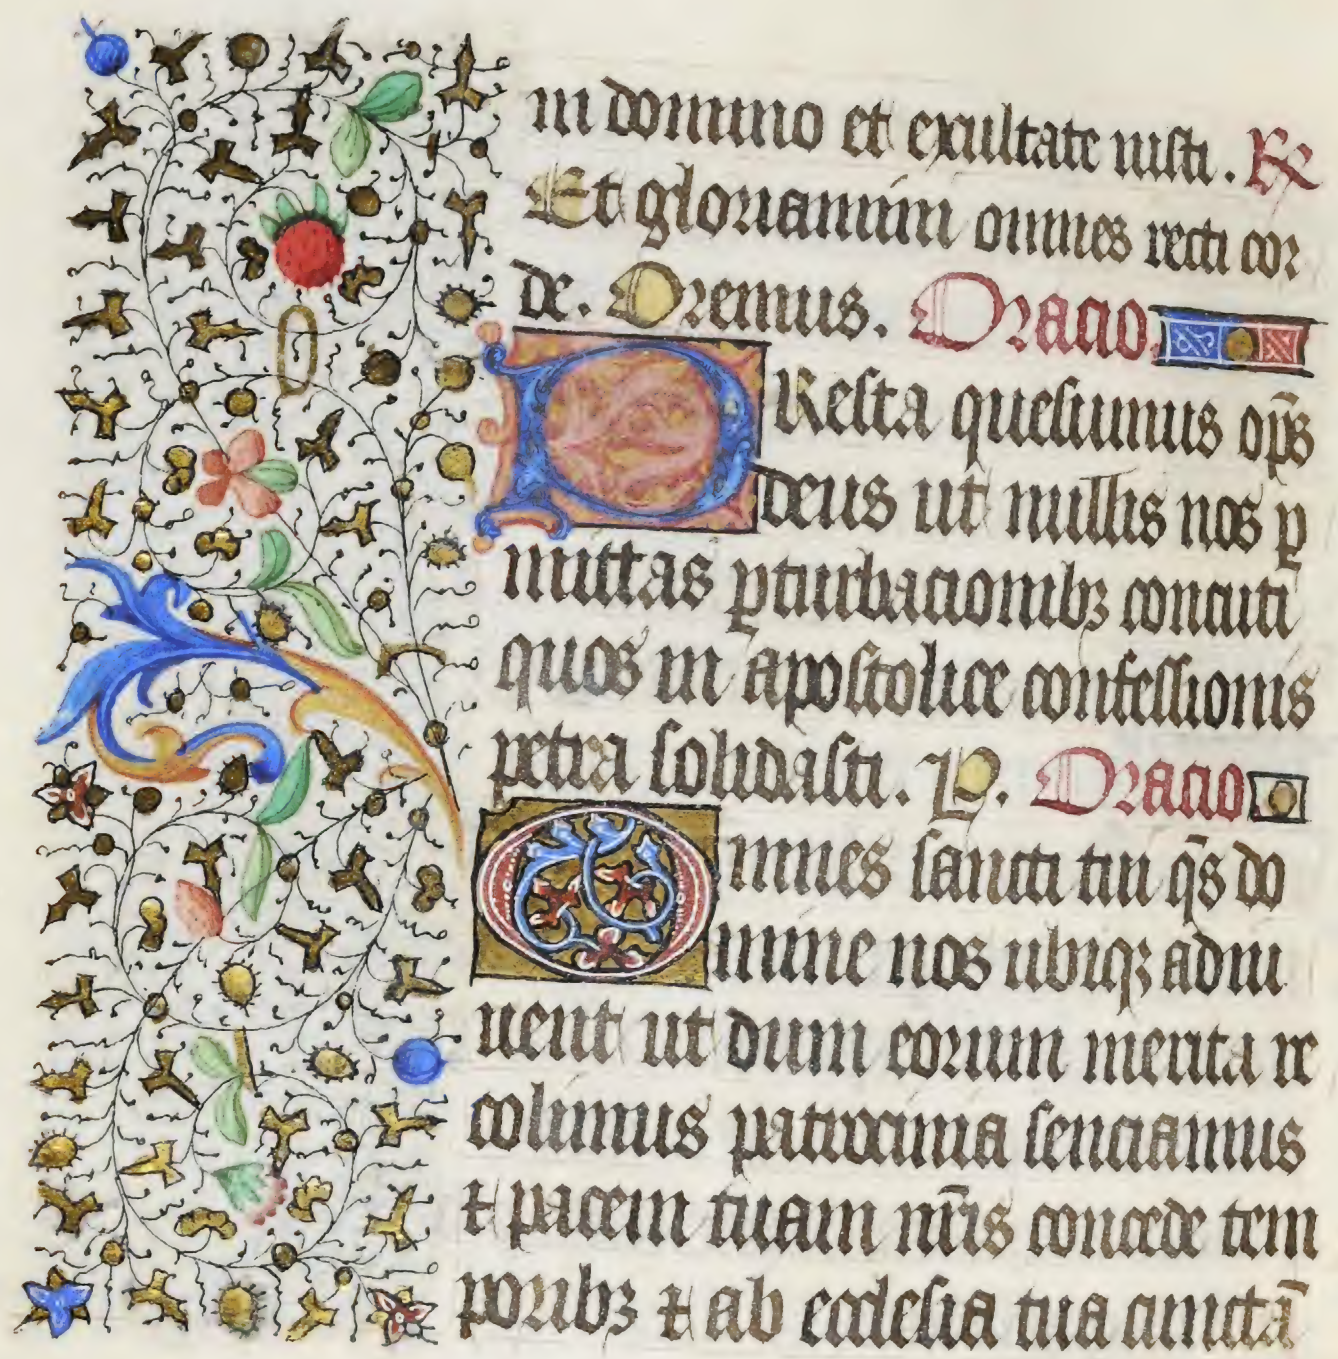 in domino et exultate iusti. R̷
Et gloriamini omnes recti cor
de. Oremus. Oracio.
PResta quesumus op̄s
deus ut nullis nos ꝑ
mittas ꝑturbacionibꝫ concuti
quos in apostolice confessionis
petra solidasti. P. Oracio
Omnes sancti tui q̄s do
mine nos ubiqꝫ adiu
uent ut dum eorum merita re
colimus patrocinia senciamus
⁊ pacem tuam nr̄is concede tem
poribꝫ ⁊ ab ecclesia tua cunctā